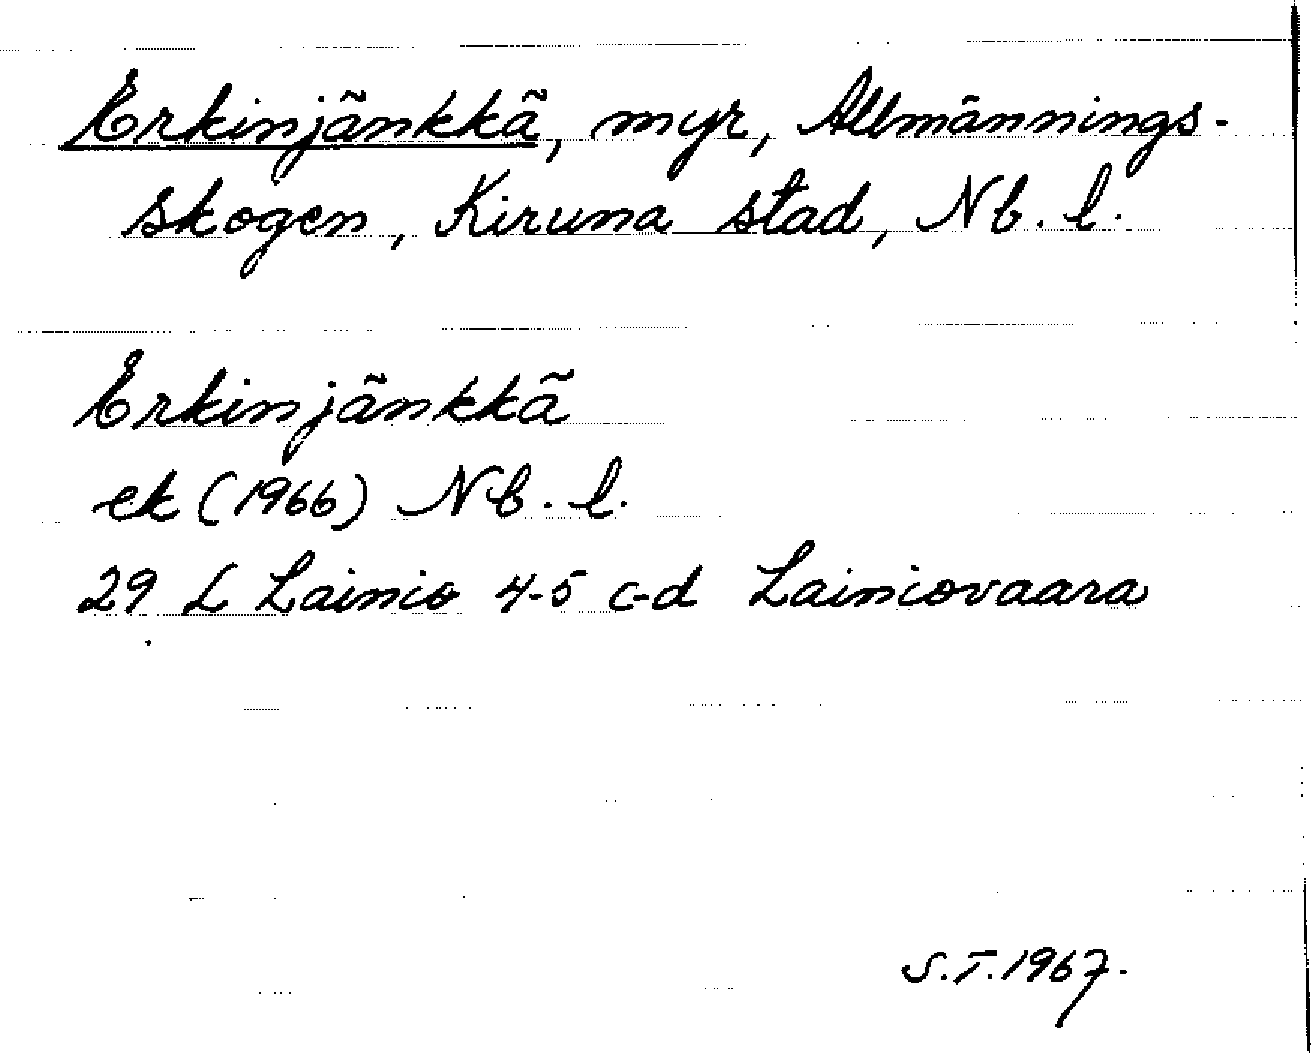 Erkinjänkkä, myr, Allmännings-
skogen, Kiruna stad, Nb. l.
Erkinjänkkä
ek (1966) Nb. l.
29 L Lainio 4-5 c-d Lainiovaara
S.T. 1967.